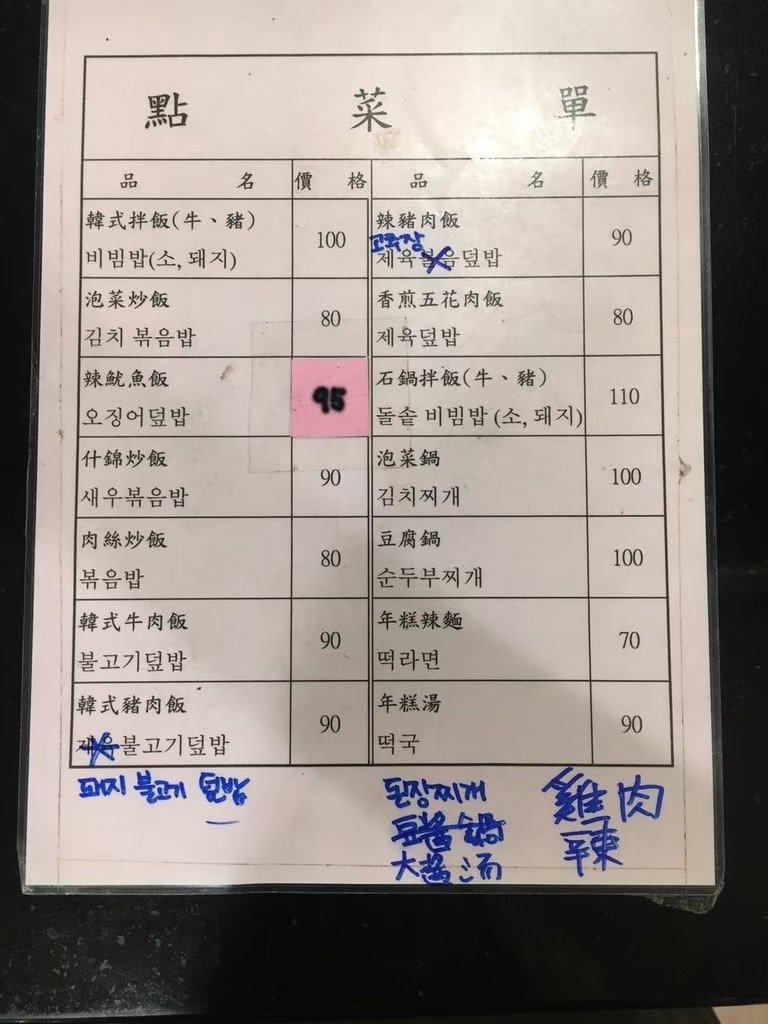 點 菜 單
品 名 價 格 品 名 價 格
韓式拌飯(牛、豬)
비빔밥(소, 돼지)
100
辣豬肉飯
고추장
제육볶음덮밥
90
泡菜炒飯
김치 볶음밥
80
香煎五花肉飯
제육덮밥
80
辣魷魚飯
오징어덮밥
95
石鍋拌飯(牛、豬)
돌솥 비빔밥 (소, 돼지)
110
什錦炒飯
새우볶음밥
90
泡菜鍋
김치찌개
100
肉絲炒飯
볶음밥
80
豆腐鍋
순두부찌개
100
韓式牛肉飯
불고기덮밥
90
年糕辣麵
떡라면
70
韓式豬肉飯
제육불고기덮밥
90
年糕湯
떡국
90
돼지 불고기 덮밥
된장찌개
豆醬鍋
大醬汤
雞肉
辣